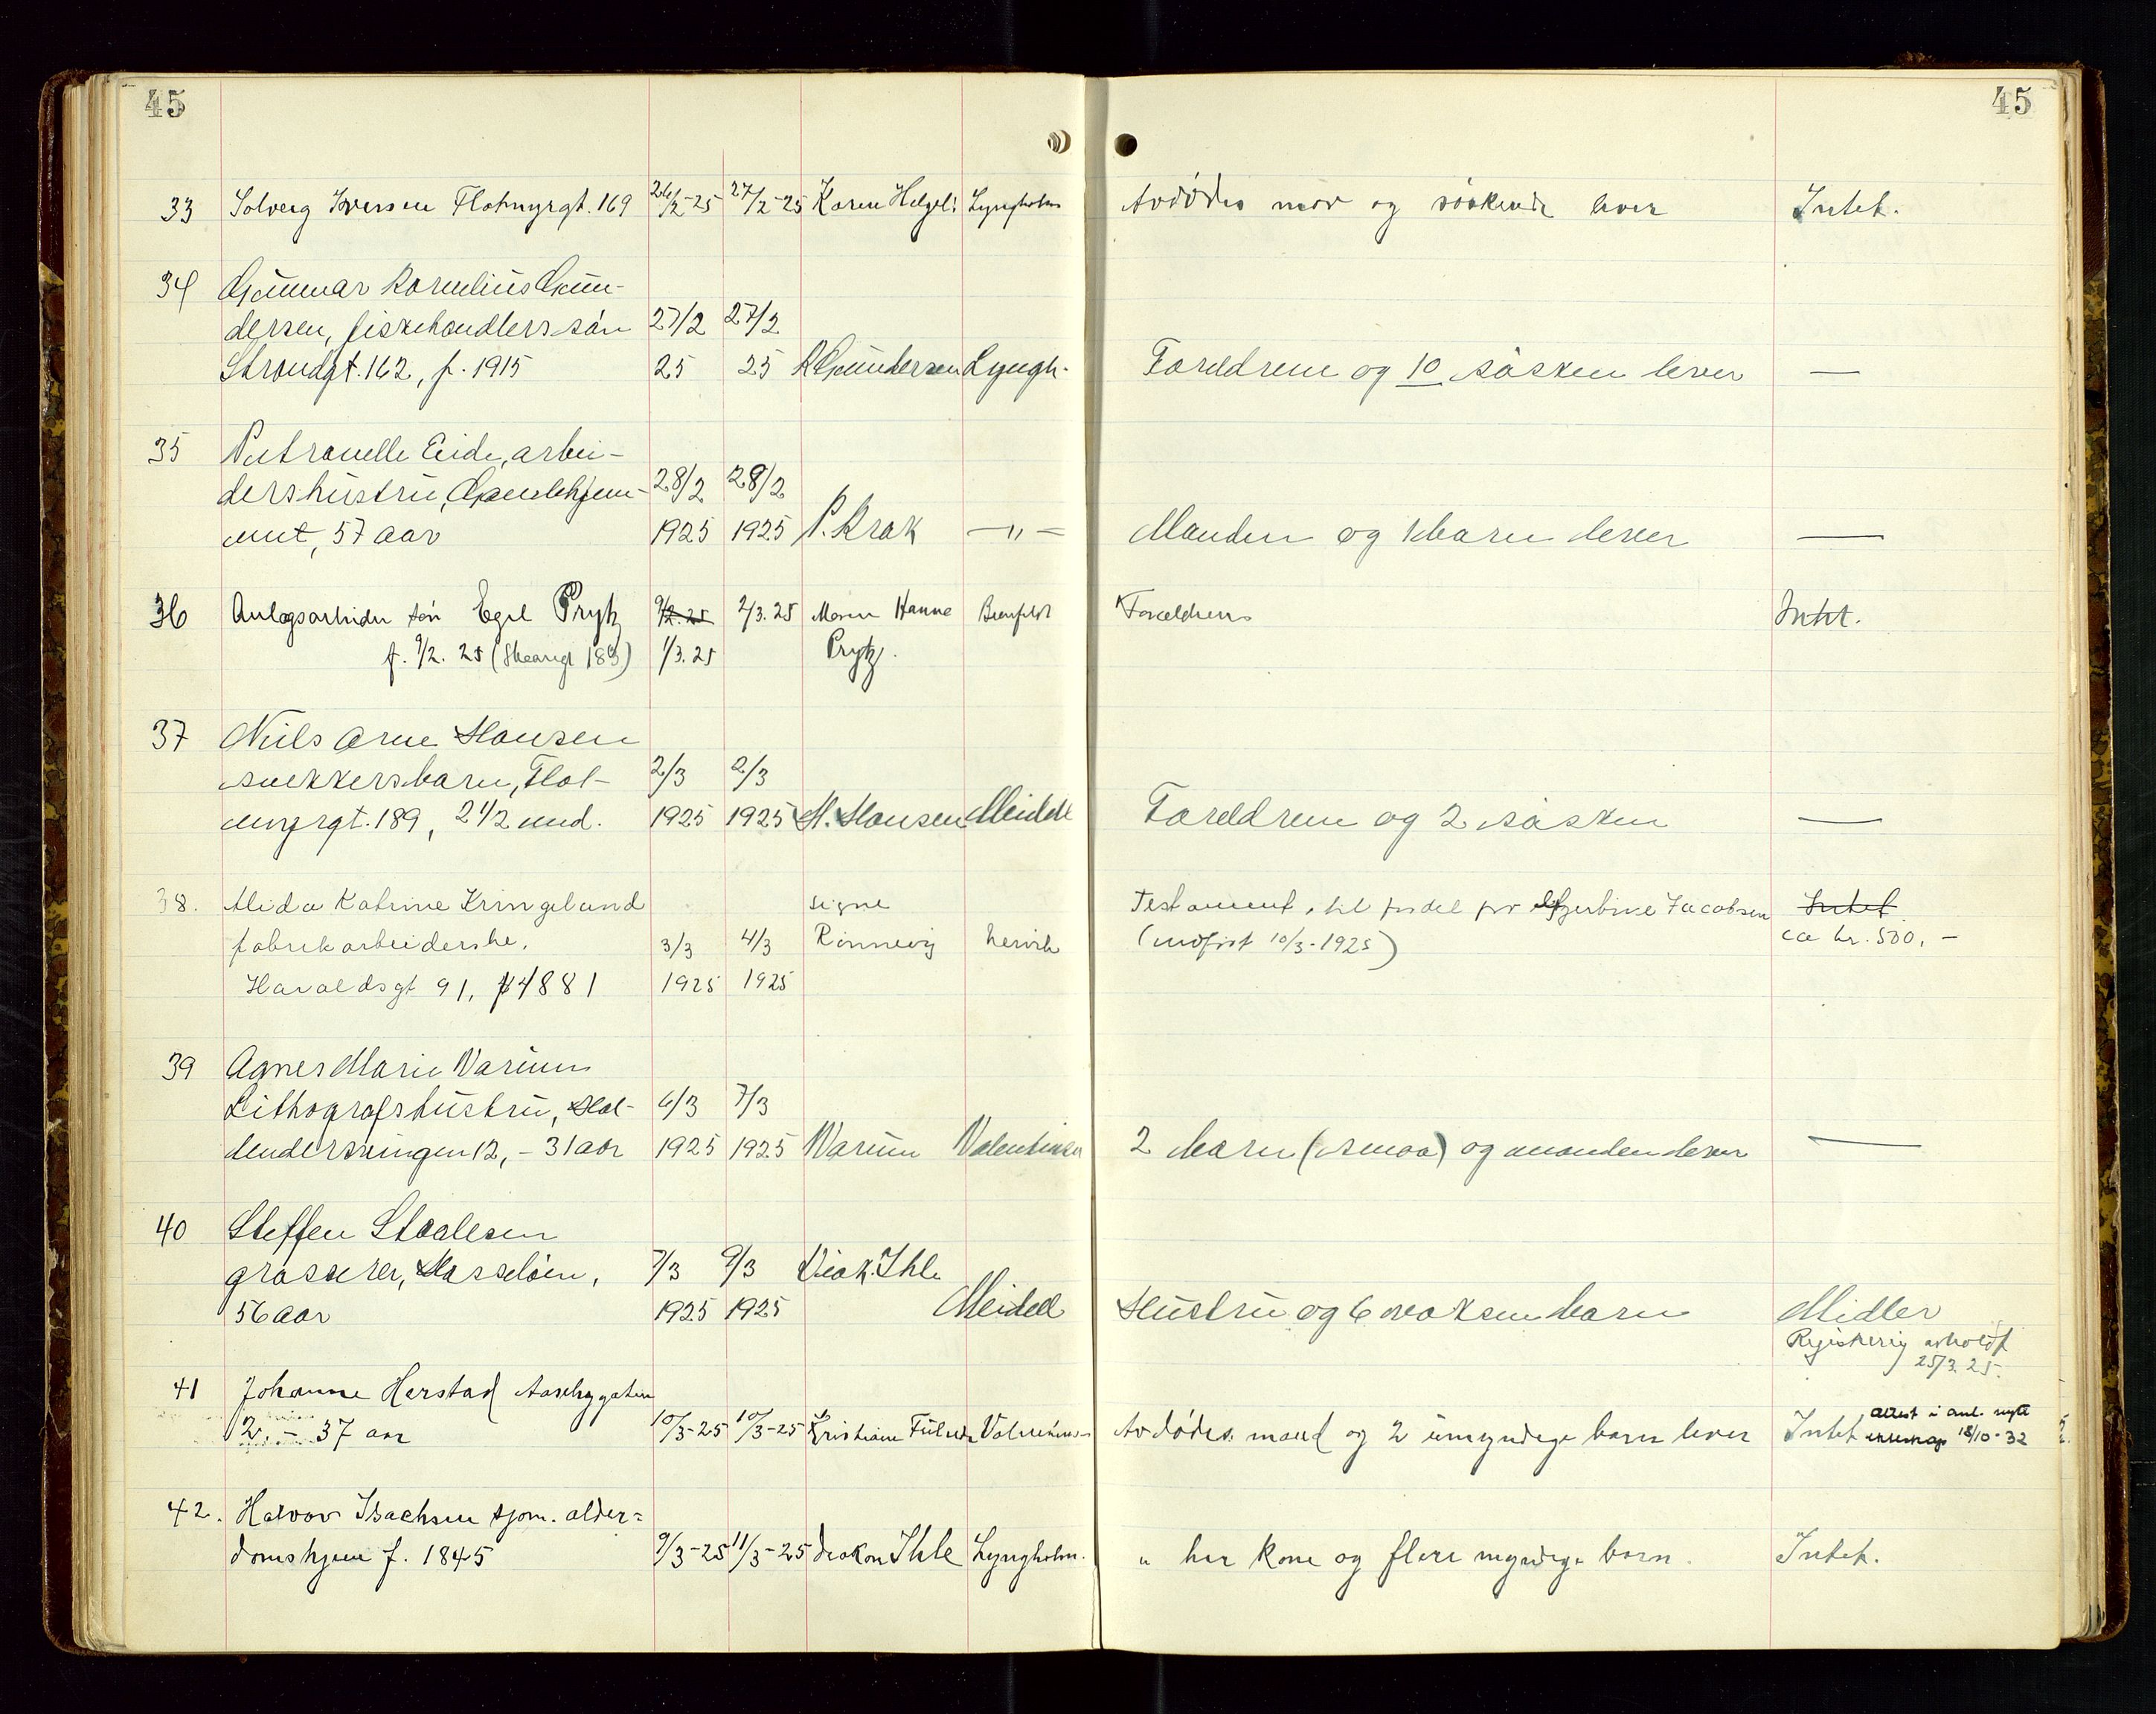 45
45
33 Solveig Iversen Flotmyrgt. 169 26/2-25 27/2-25 Karen Lyngholm Avdødes mor og søskende lever Intet.
34 Gunnar Kornelius Gun-
dersen, fiskehandlers søn 27/2 27/2
Strandgt. 162, f. 1915 25 25 K Gundersen Lyngh. Foreldrene og 10 søsken lever —
35 Petronelle Eide, arbei-
dershustru, Gamlehjem- 28/2 28/2
met, 57 aar 1925 1925 P. Krak —"— Manden og 1 barn lever —
36 Anlægsarbeider søn Egil Prytz 9/2.25 2/3.25 Moren Hanne Forældrene Intet.
f. 9/2. 25 (Skaregt 183) 1/3.25 Prytz.
37 Nils Arne Hansen
snekkersbarn, Flot- 2/3 2/3
myrgt. 189, 2 1/2 mnd. 1925 1925 H. Hansen Meidell Foreldrene og 2 søsken —
38. Alida Katrine Kringeland signe Testament, til fordel for Gjertine Jacobsen Intet
fabrikarbeiderske, 3/3 4/3 Rønnevig Lervik (innført 10/3-1925) ca kr. 500,-
Haraldsgt 91, f 1881 1925 1925
39 Agnes Marie Narum
Lithografshustru, Hol- 6/3 7/3
lendersvingen 12, - 31 aar 1925 1925 Narum Valentinsen 2 barn (smaa) og manden lever —
40 Steffen Staalesen
grosserer, Hasseløen, 7/3 9/3 Diak. Ihle
56 aar 1925 1925 Meidell Hustru og 6 voksen barn Midler
Registrering avholdt
25/3 25.
41 Johanne Herstad Aasebygaten
12. - 37 aar 10/3-25 10/3-25 Kristiane Valentinsen Avdødes mand og 2 umyndige barn lever Intet attest i anl. nytt
ekteskap 18/10-32
42. Halvor Isachsen sjøm. alder=
domshjem f. 1845 9/3-25 11/3-25 diakon Ihle Lyngholm. " har kone og flere myndige barn. Intet.